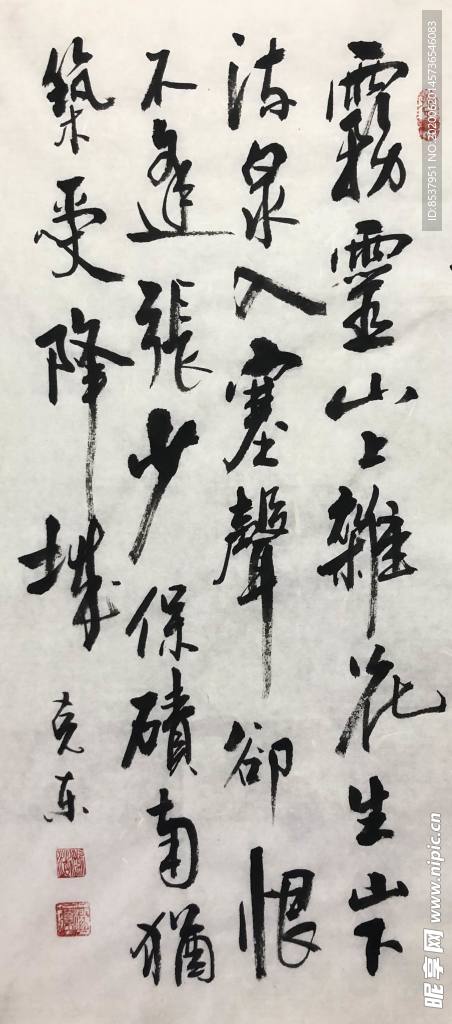 霧靈山上雜花生山下
流泉入塞聲卻恨
不逢張少保磧南猶
築受降城
克东
ID:8537951 NO:20200620145736546083
昵享网 www.nipic.cn